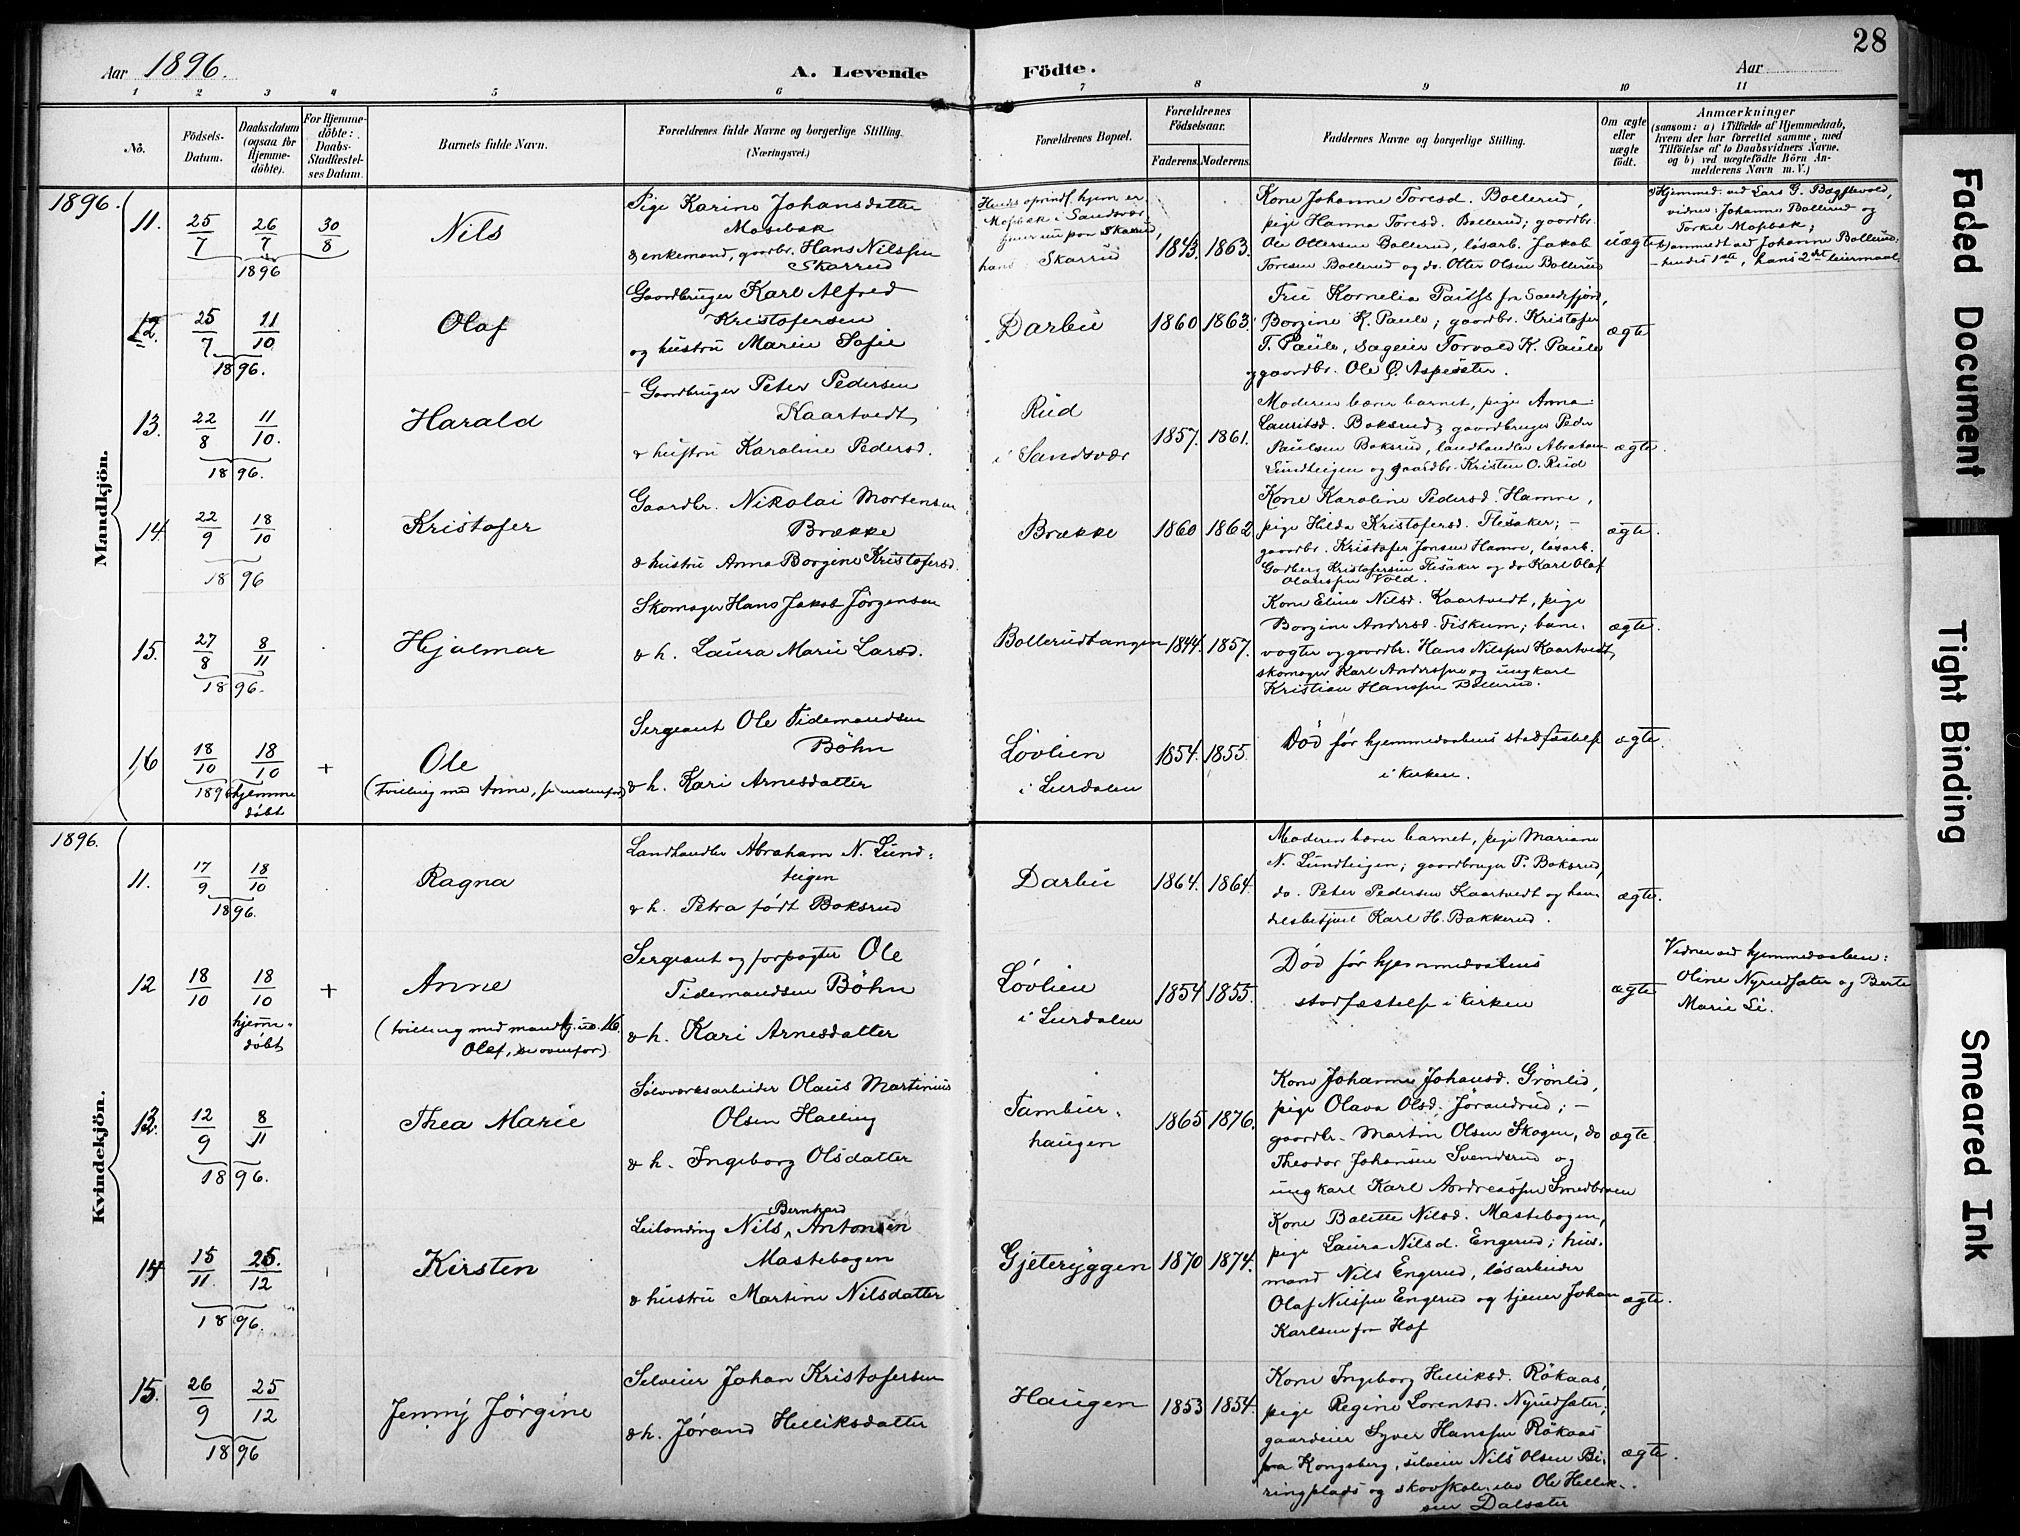 28
Aar 1896.
A. Levende Födte.
Aar
1 2 3 4 5 6 7 8 9 10 11
No.
Födsels-Datum.
Daabsdatum (ogsaa for Hjemmedöbte).
For Hjemmedöbte: Daabs-Stadfæstelses Datum.
Barnets fulde Navn.
Forældrenes fulde Navne og borgerlige Stilling. (Næringsvei.)
Forældrenes Bopæl.
Forældrenes Födselsaar.
Faderens. Moderens.
Faddernes Navne og borgerlige Stilling.
Om ægte eller uægte födt.
Anmærkninger
(saasom: a) i Tilfælde af Hjemmedaab, hvem der har forrettet samme, med Tilföielse af to Daabsvidners Navne, og b) ved uægtefödte Börn Anmelderens Navn m. V.)
Mandkjön.
1896.
11. 25/7 26/7 30/8
1896
Nils
Pige Karine Johansdatter
Mosebak
& enkemand, gaardbr. Hans Nilssen
Skarrud
Hendes oprindl. hjem er
Mosbak i Sandsvær
hans Skarrud
1843. 1863.
Kone Johanne Toresd. Bollerud,
pige Hanna Toresd. Bollerud; gaardbr.
Ole Ottersen Bollerud, løsarb. Jakob
Toresen Bollerud og do. Otter Olsen Bollerud
uægte
a) Hjemmed. ved Lars G. Bægstevold,
vidner: Johanne Bollerud og
Torkel Mosbak;
b) anmeldt ved Johanne Bollerud;
- hendes 1ste, hans 2det leiermaal
12. 25/7 11/10
1896.
Olaf
Gaardbruger Karl Alfred
Kristofersen
og hustru Maren Sofie
Darbu
1860 1863.
Fru Kornelia Paulss fra Sandefjord,
Borgine K. Paule; gaardbr. Kristofer
T. Paule, sageier Torvald K. Paule
og gaardbr. Ole Ø. Aspesæter.
ægte
13. 22/8 11/10.
1896.
Harald
- Gaardbruger Peter Pedersen
Kaartvedt
& hustru Karoline Pedersd.
Rud
i Sandsvær
1857. 1861.
Moderen bærer barnet, pige Anna
Lauritsd. Boksrud; gaardbruger Peder
Paulsen Boksrud, landhandler Abraham
Lundteigen og gaardbr. Kristen O. Rud
ægte.
14. 22/9 18/10
1896
Kristofer
Gaardbr. Nikolai Mortensen
Brække
& hustru Anna Borgine Kristofersd.
Brække
1860 1862
Kone Karoline Pedersd. Hamre,
pige Hilda Kristofersd. Flesaker; -
gaardbr. Kristofer Jonsen Hamre, løsarb.
Godberg Kristofersen Flesaker og do Karl Olaf
Olaussen Vold.
ægte.
15. 27/8 8/11
1896.
Hjalmar
Skomager Hans Jakob Jørgensen
& h. Laura Marie Larsd.
Bollerudtangen
1844. 1857.
Kone Eline Nilsd. Kaartvedt, pige
Borgine Andersd. Fiskum; bane-
vogter og gaardbr. Hans Nilssen Kaartvedt,
skomager Karl Anderssen og ungkarl
Kristian Hanssen Bollerud.
ægte.
16 18/10 18/10 +
1896 hjemme
døbt
Ole
(tvilling med Anne, se nedenfor)
Sergeant Ole Tidemandsen
Böhn
& h. Kari Arnesdatter
Løvlien
i Lurdalen
1854. 1855.
Død før hjemmedaabens stadfæstelse
i kirken.
ægte.
Kvindekjön.
1896.
11. 17/9 18/10
1896.
Ragna
Landhandler Abraham N. Lund-
teigen
& h. Petra født Boksrud
Darbu
1864. 1864.
Moderen bærer barnet, pige Mariane
N. Lundteigen; gaardbruger P. Boksrud,
do. Peter Pedersen Kaartvedt og han-
delsbetjent Karl H. Bakkerud.
ægte.
12 18/10 18/10 +
hjemme-
døbt
Anne
(tvilling med mandkj. no. 16
Ole, se ovenfor)
Sergeant og forpagter Ole
Tidemandsen Böhn
& h. Kari Arnesdatter
Løvlien
i Lurdalen
1854 1855.
Død før hjemmedaabens
stadfæstelse i kirken
ægte
Vidner ved hjemmedaaben:
Oline Nyrudsæter og Berte
Marie Li.
13. 12/9 8/11
1896.
Thea Marie
Sølvværksarbeider Olaus Martinius
Olsen Halling
& h. Ingeborg Olsdatter
Tambur-
haugen
1865 1876.
Kone Johanne Johansd. Grönlid,
pige Olava Olsd. Jørandrud; -
gaardbr. Martin Olsen Skogen, do
Theodor Johansen Svendsrud og
ungkarl Karl Andreassen Smedbroen
ægte.
14 15/11. 26/12
1896.
Kirsten
Leilending Nils Bernhard Antonsen
Mastebogen
& hustru Martine Nilsdatter
Gjeteryggen
1870 1874.
Kone Bolette Nilsd. Mastebogen,
pige Laura Nilsd. Engerud; hus-
mand Nils Engerud, løsarbeider
Olaf Nilssen Engerud og tjener Johan
Karlsen fra Hof
ægte.
15. 26/9 25/12
1896
Jenny Jørgine
Selveier Johan Kristofersen
& h. Jørand Helliksdatter
Haugen
1853 1854.
Kone Ingeborg Helliksd. Rökaas,
pige Regine Lorentsd. Nyrudsæter;
gaardeier Syver Hanssen Rökaas
fra Kongsberg, selveier Nils Olsen Bi-
ringplads og Ole Hellik-
sen Dalsæter
ægte.
Faded Document
Tight Binding
Smeared Ink